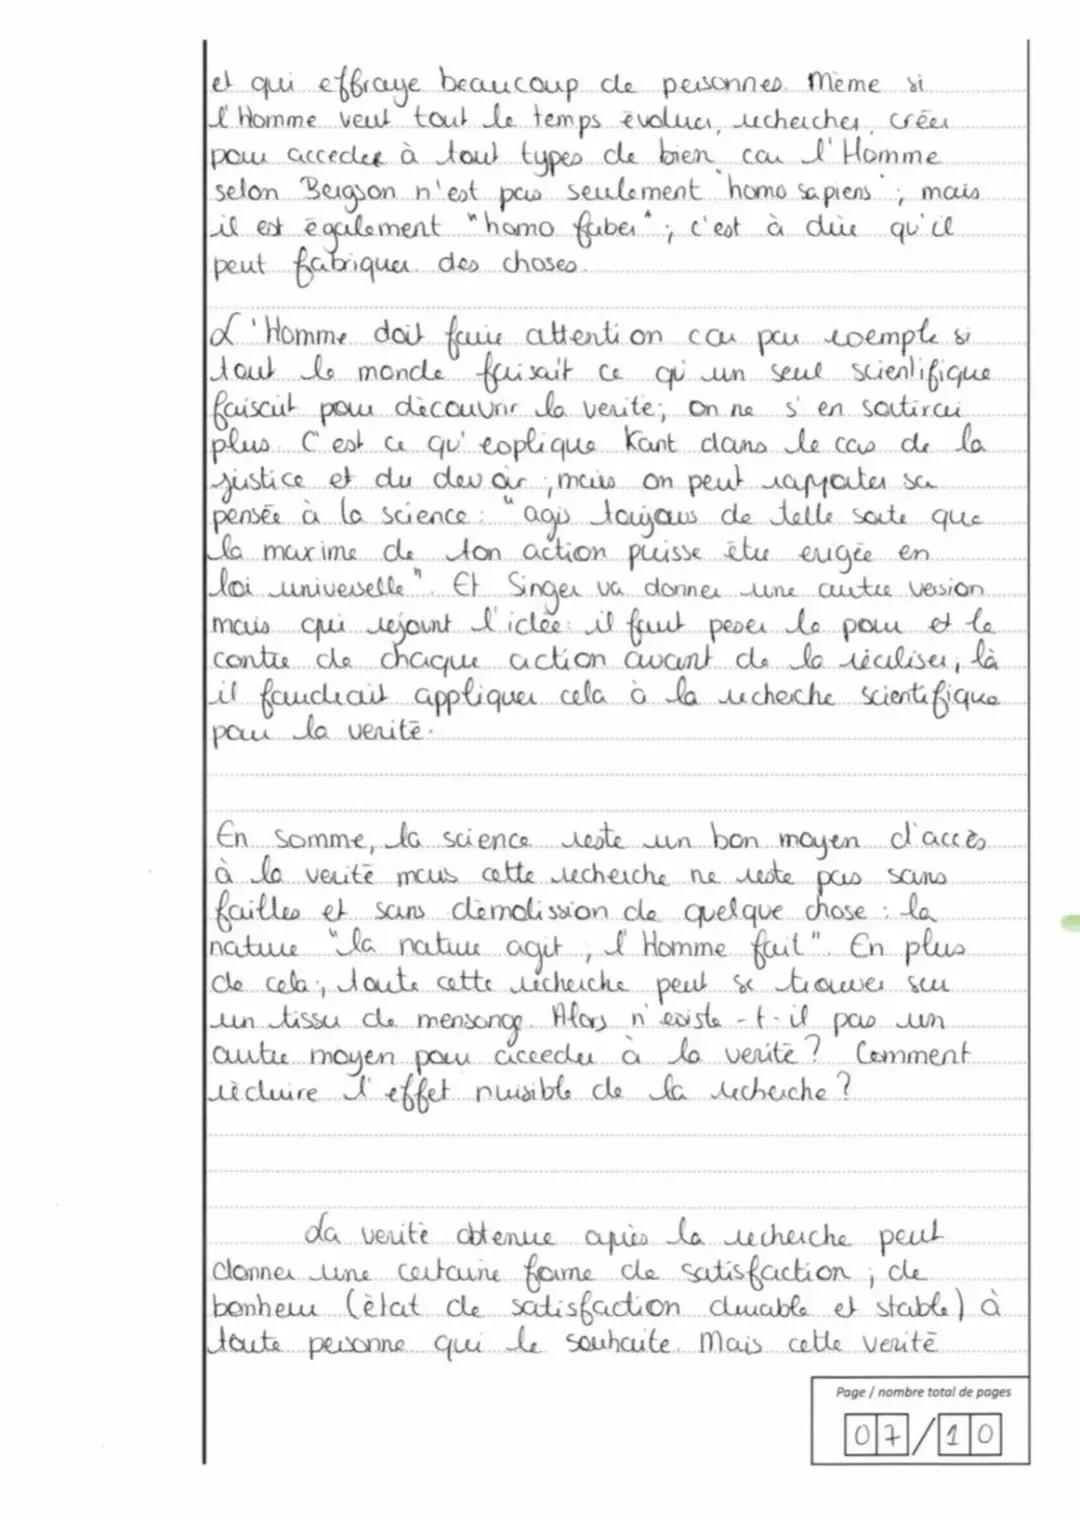 et qui effraye beaucoup de personnes. Même si
l'Homme veut tout le temps évoluer, rechercher, créer
pour acceder à tout types de bien car l'Homme
selon Bergson n'est pas seulement "homo sapiens"; mais
il est également "homo faber"; c'est à dire qu'il
peut fabriquer des choses.
L'Homme doit faire attention car par exemple si
tout le monde faisait ce qu'un seul scientifique
faisait pour découvrir la verité; on ne s'en sortirai
plus. C'est ce qu'explique Kant dans le cas de la
justice et du devoir; mais on peut rapporter sa
pensée à la science: "agis toujours de telle sorte que
la maxime de ton action puisse être erigée en
loi universelle". Et Singer va donner une autre version
mais qui rejoint l'idée: il faut peser le pour et le
contre de chaque action avant de la réaliser, là
il faudrait appliquer cela à la recherche scientifique
pour la verité.
En somme, la science reste un bon moyen d'accès
à la verité mais cette recherche ne reste pas sans
failles et sans démolission de quelque chose: la
nature "la nature agit, l'Homme fait". En plus
de cela; toute cette recherche peut se trouver sur
un tissu de mensonge. Alors n'existe-t-il pas un
autre moyen pour acceder à la verité? Comment
réduire l'effet nuisible de la recherche?
La verité obtenue après la recherche peut
donner une certaine forme de satisfaction; de
bonheur (état de satisfaction durable et stable) à
toute personne qui le souhaite. Mais cette verité
Page / nombre total de pages
07/10